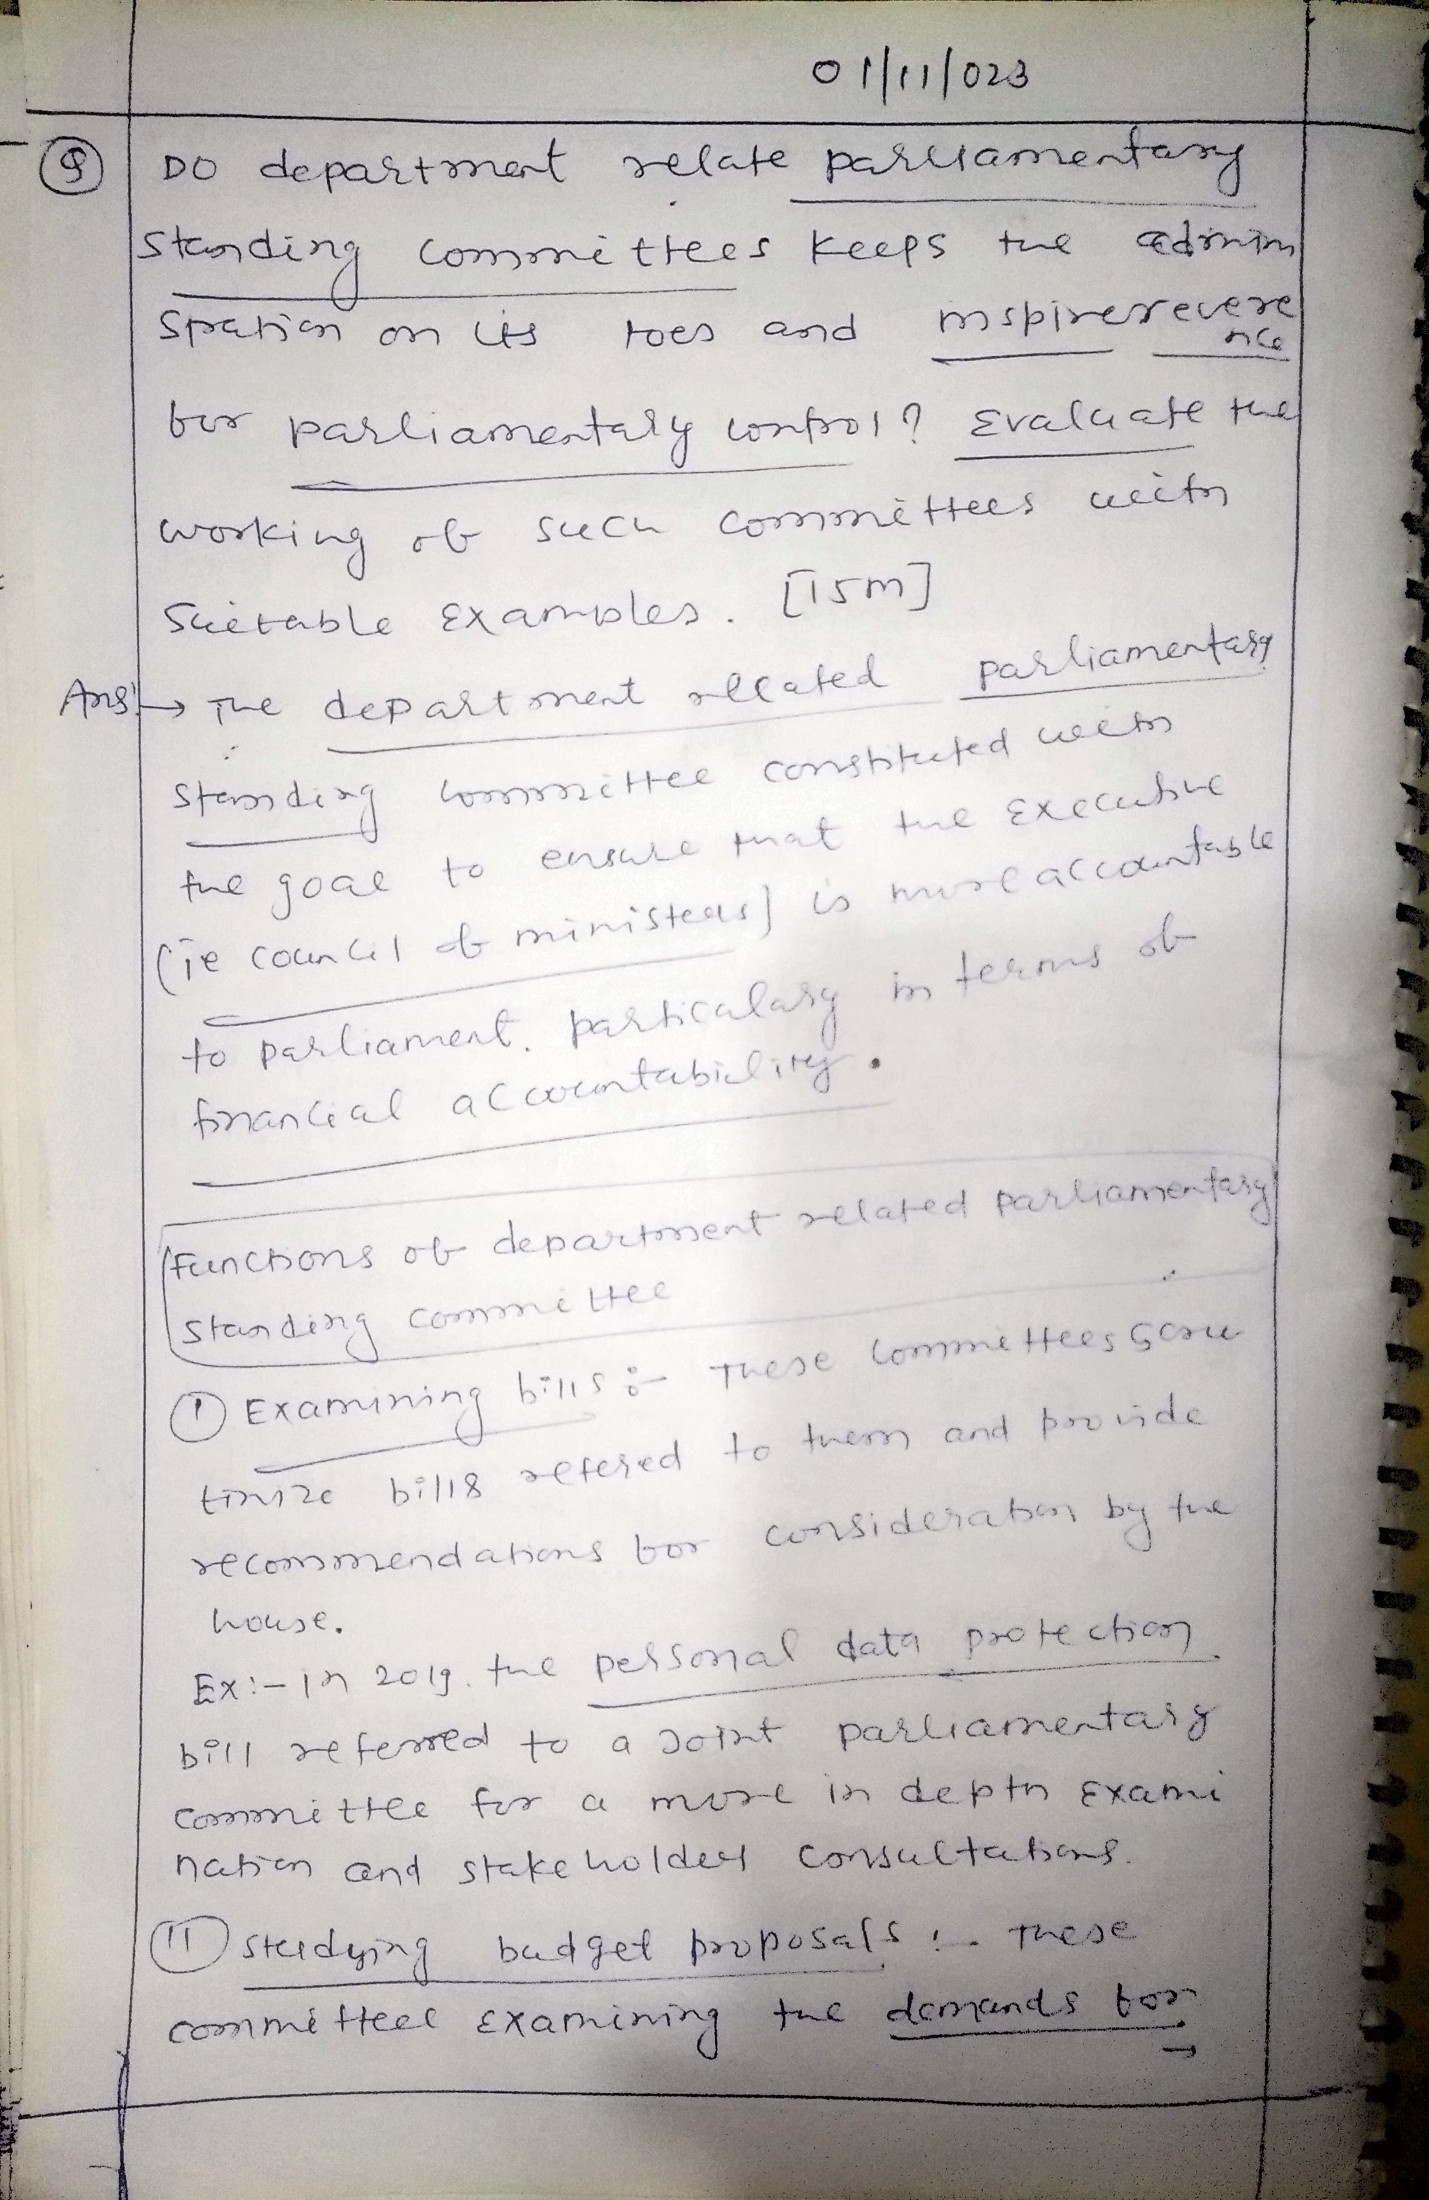 01/11/023
Q DO department relate parliamentary
standing committees keeps the admini
stration on its toes and inspire revere
nce
for parliamentary control? Evaluate the
working of such committees with
suitable examples. [15m]
Ans:→ The department related parliamentary
standing committee constituted with
the goal to ensure that the Executive
(ie council of ministers) is more accountable
to parliament. particulary in terms of
financial accountability.
Functions of department related parliamentary
standing committee
(I) Examining bills :- These committees scru
tinize bills refered to them and provide
recommendations for consideration by the
house.
Ex:- In 2019. the personal data protection
bill referred to a Joint parliamentary
committee for a more in depth Exami
nation and stakeholder consultations.
(II) studying budget proposals :- These
committeee Examining the demands for
→